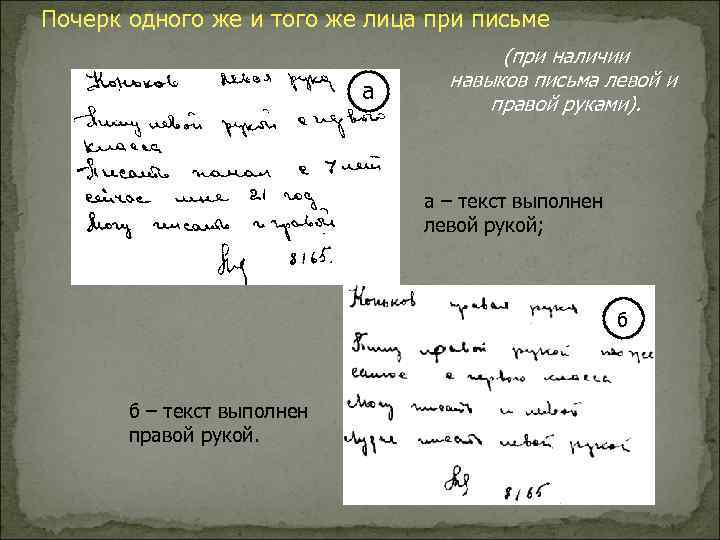 Почерк одного же и того же лица при письме
(при наличии
навыков письма левой и
правой руками).
а
Коньков левая рука
Пишу левой рукой с первого
класса
Писать начал с 7 лет
сейчас мне 21 год
Могу писать и правой
8/65.
а – текст выполнен
левой рукой;
б
Коньков правая рука
Пишу правой рукой тоже
самое с первого класса
Могу писать и левой
Лучше писать левой рукой
8/65
б – текст выполнен
правой рукой.